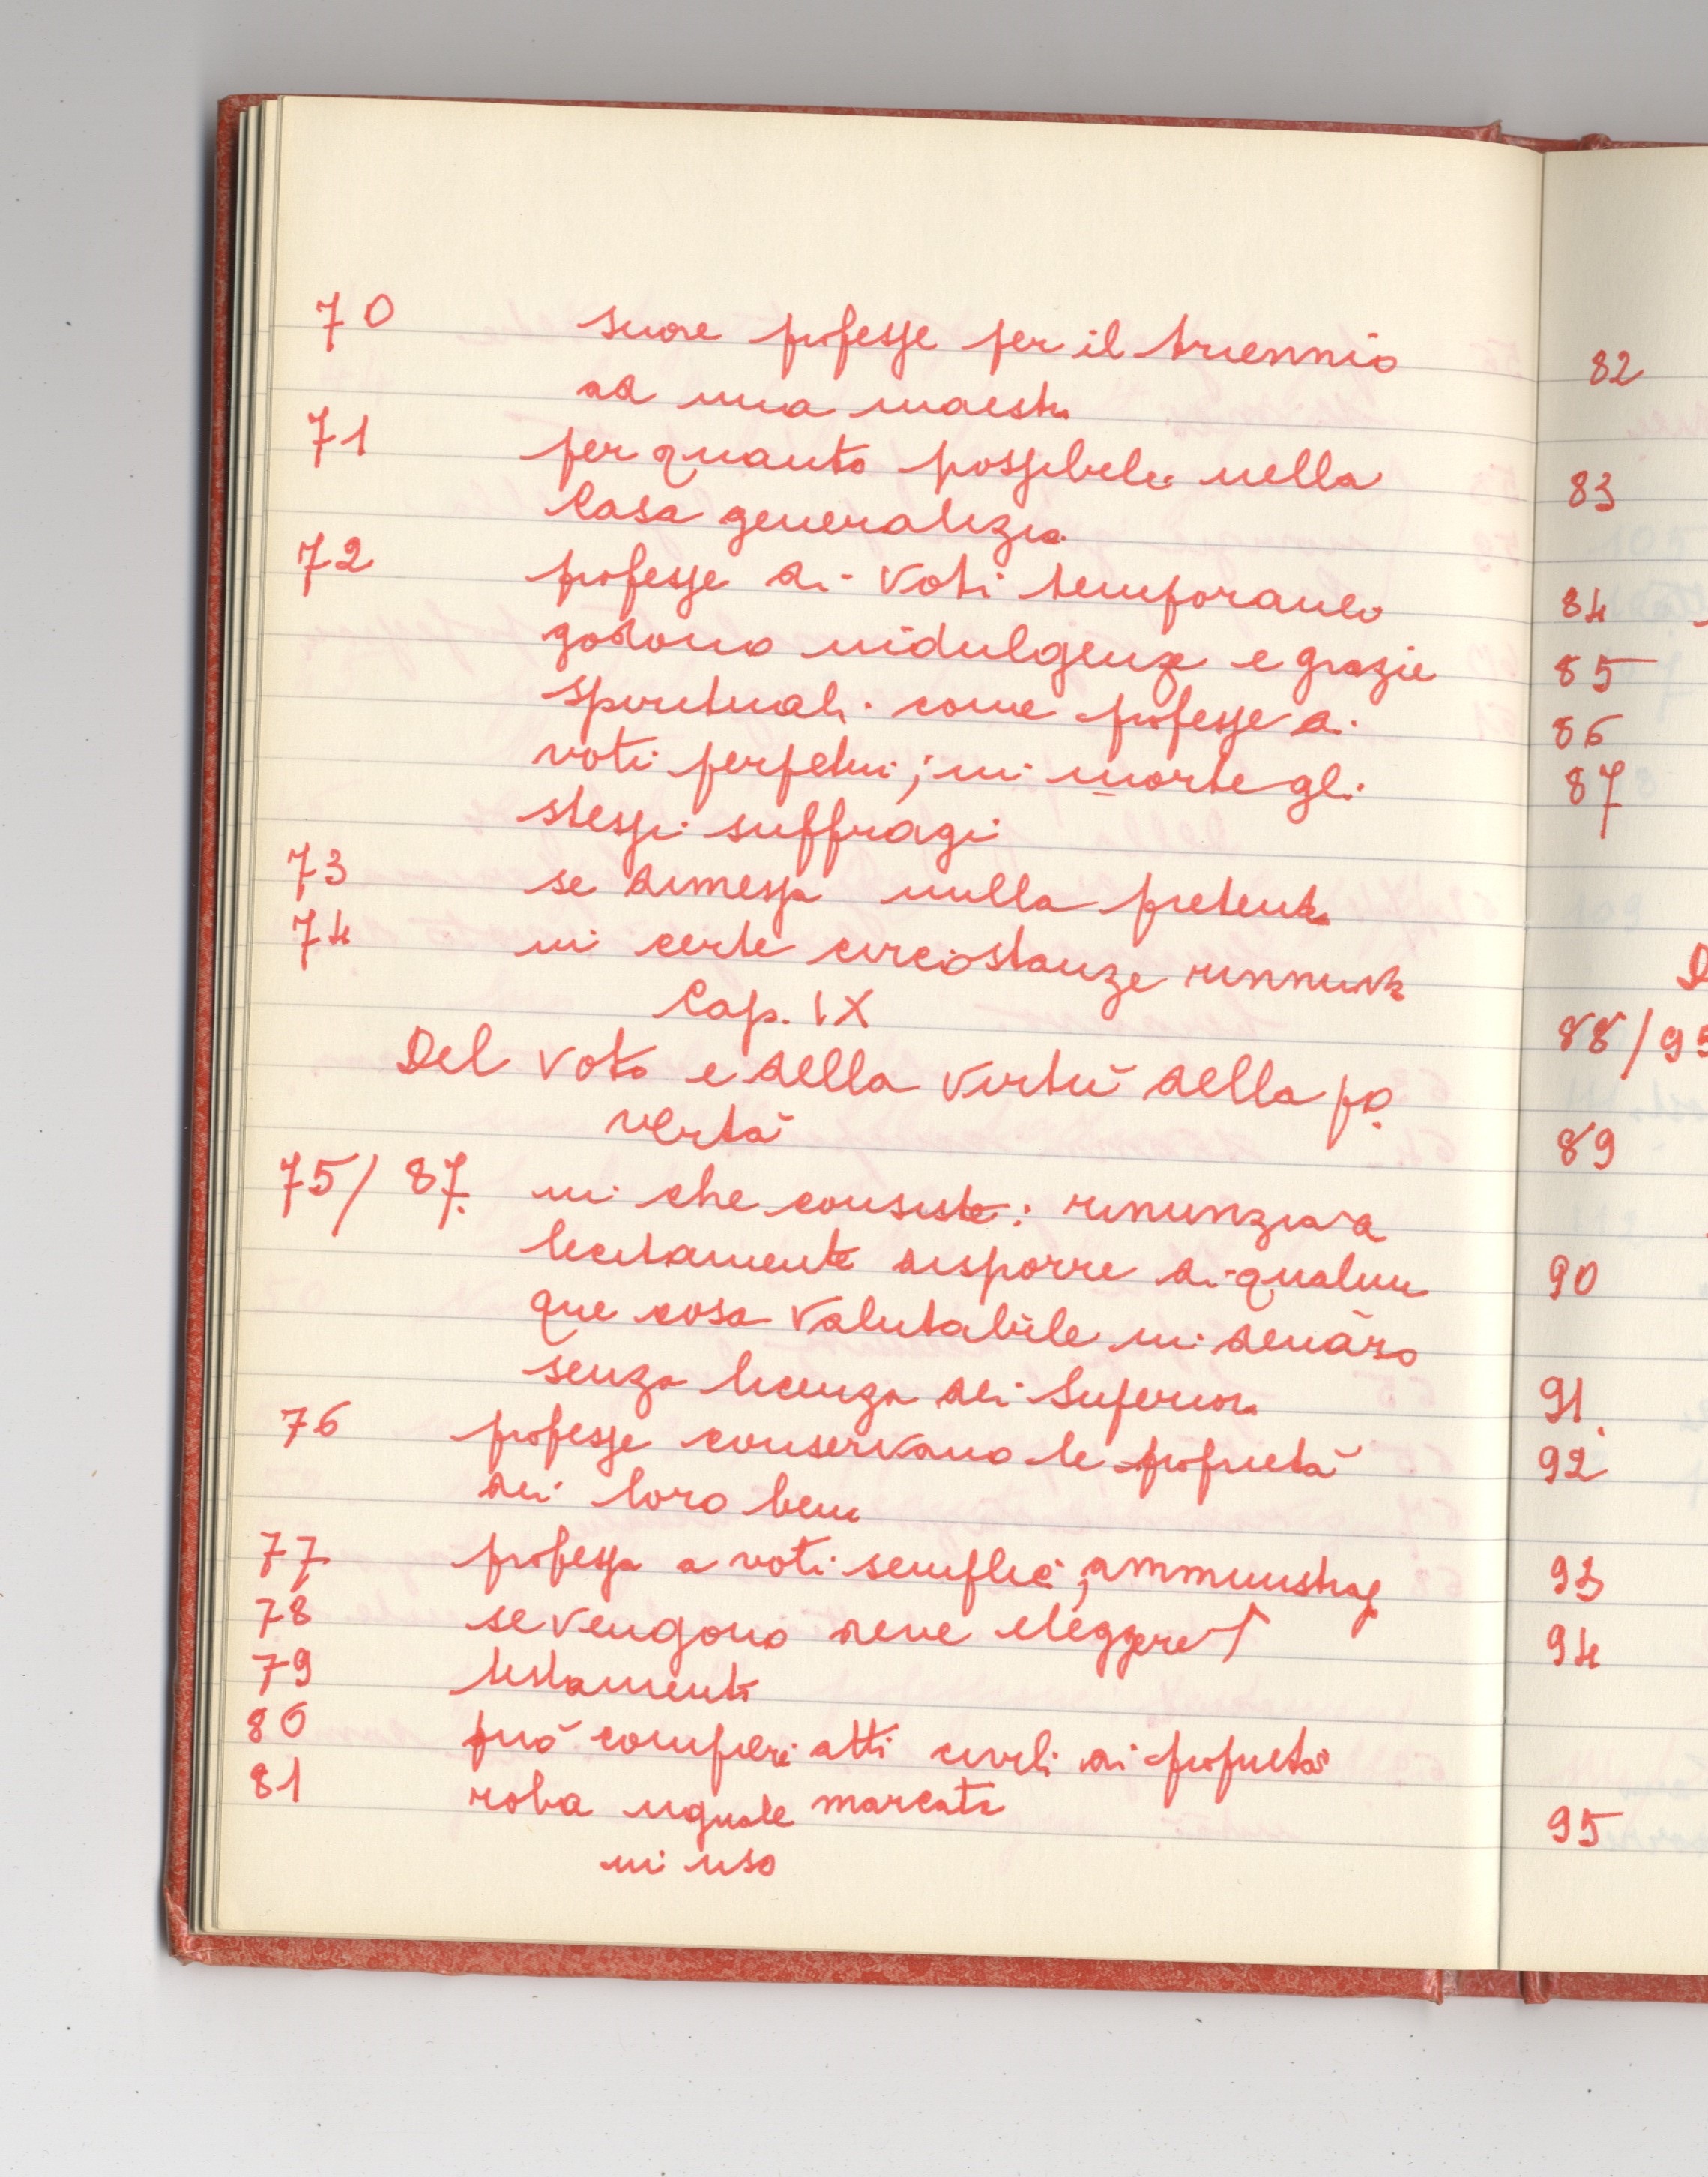 70 suore professe per il triennio
ad una maestra
71 per quanto possibile nella
Casa generalizia
72 professe di voti temporanei
godono indulgenze e grazie
spirituali come professe di
voti perpetui; in morte gli
stessi suffragi
73 se dimessa nulla pretende
74 in certe circiostanze
Cap. IX
Del voto e della virtù della po
vertà
75/87. in che consiste: rinunzia a
lecitamente disporre di qualun
que cosa valutabile in denaro
senza licenza dei Superiori
76 professe conservano le proprietà
dei loro beni
77 professa a voti semplici;
78 se vengono deve eleggere
79 testamento
80 può compiere atti civili di proprietà
81 roba uguale marcata
in uso
82
83
84
85
86
87
D
88/95
89
90
91.
92
93
94
95